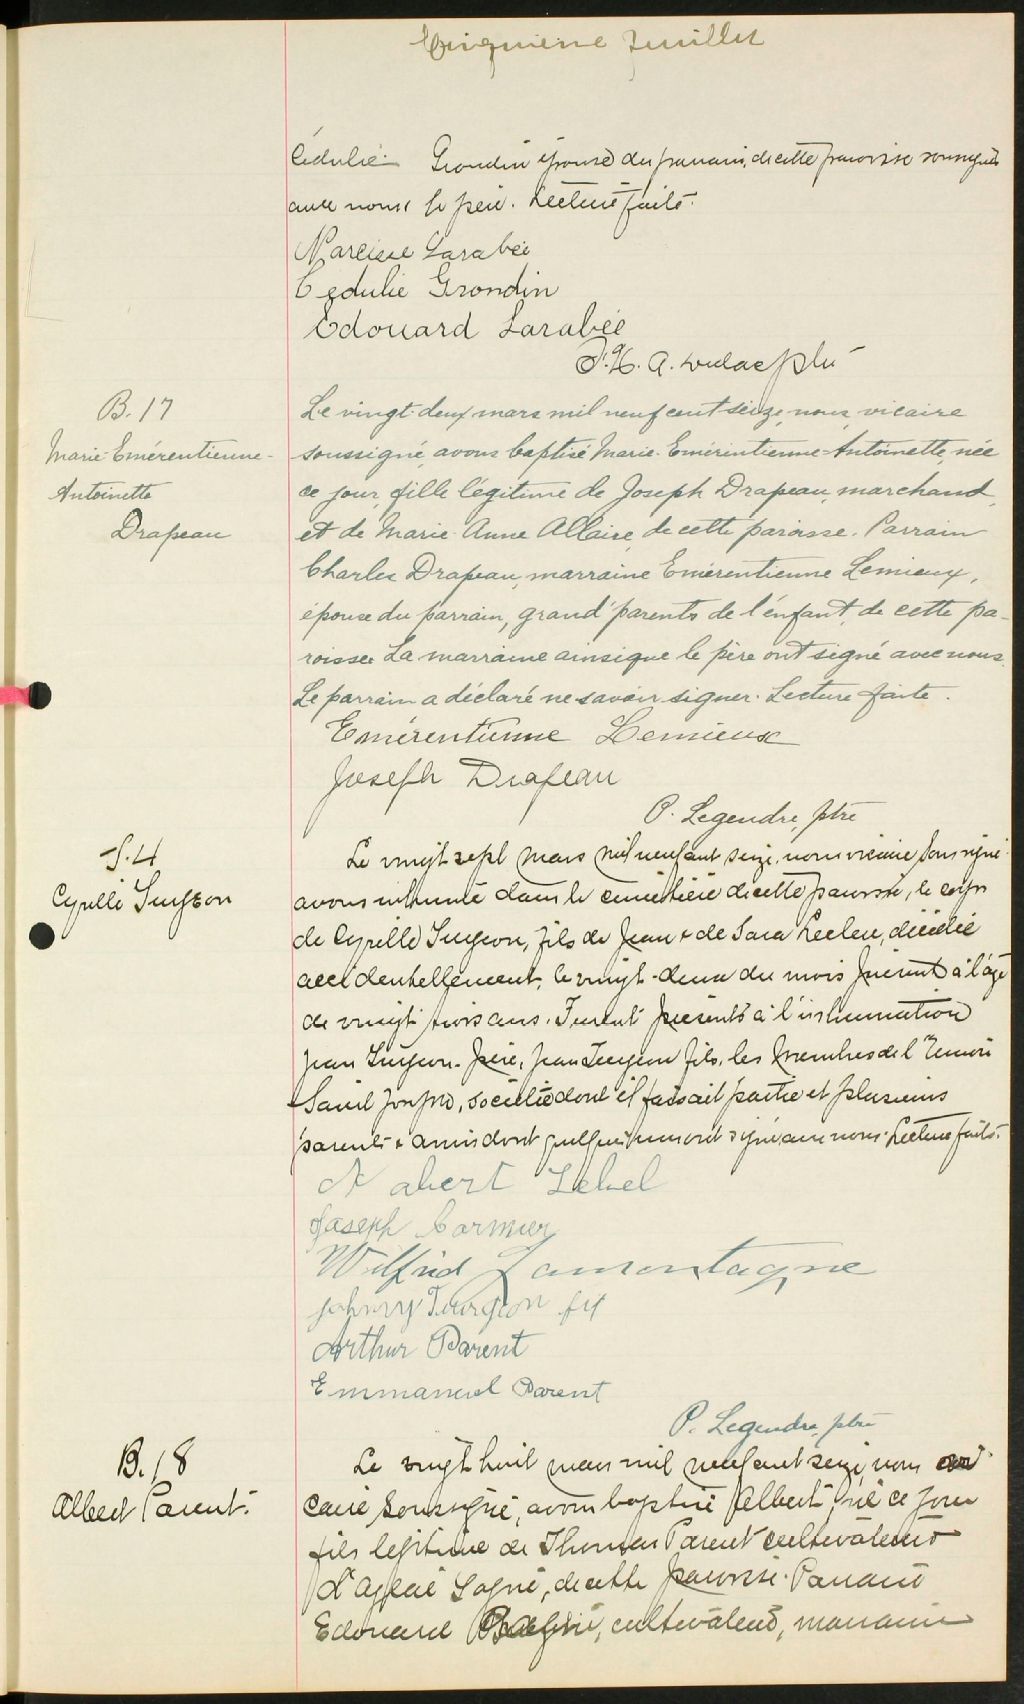 Cinquième feuillet
Cédulie Grondin épouse du parrain, de cette paroisse soussignés
avec nous le père. Lecture faite.
Narcisse Larabée
Cedulie Grondin
Edouard Larabée
J. H. A. ptre
B. 17
Marie-Emérentienne-
Antoinette
Drapeau
Le vingt-deux mars mil neuf cent seize, nous, vicaire
soussigné, avons baptisé Marie-Emérintienne-Antoinette, née
ce jour, fille légitime de Joseph Drapeau, marchand,
et de Marie-Anne Allaire, de cette paroisse. Parrain
Charles Drapeau, marraine Emérentienne Lemieux,
épouse du parrain, grand'parents de l'enfant, de cette pa-
roisse. La marraine ainsi que le père ont signé avec nous.
Le parrain a déclaré ne savoir signer. Lecture faite.
Emérentienne Lemieux
Joseph Drapeau
P. Legendre, ptre
S. 4
Cyrille Turgeon
Le vingt sept mars mil neuf cent seize, nous vicaire soussigné
avons inhumé dans le cimetière de cette paroisse, le corps
de Cyrille Turgeon, fils de Jean & de Sara Leclerc, décédé
accidentellement, le vingt-deux du mois présent à l'âge
de vingt trois ans. Furent présents à l'inhumation
Jean Turgeon, père, Jean Turgeon fils, les membres de l'Union
Saint Joseph, société dont il faisait partie et plusieurs
parents & amis dont quelques uns ont signé avec nous. Lecture faite.
Lebel
Joseph Cormier
Wilfrid Lamontagne
Johnny Turgeon
Arthur Parent
Emmanuel Parent
P. Legendre, ptre
B. 18
Albert Parent.
Le vingt huit mars mil neuf cent seize, nous vi
caire soussigné, avons baptisé Albert, né ce jour
fils légitime de Thomas Parent cultivateur &
d'Aglaé Gagné, de cette paroisse. Parrain
Edouard, cultivateur, marraine